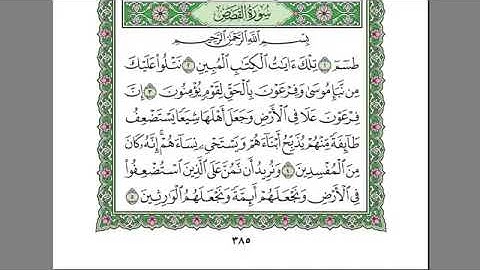 سُورَةُ القَصَصِ
بِسْمِ اللَّهِ الرَّحْمَٰنِ الرَّحِيمِ
طسٓمٓ ۝١ تِلْكَ ءَايَٰتُ الْكِتَٰبِ الْمُبِينِ ۝٢ نَتْلُوا۟ عَلَيْكَ
مِن نَّبَإِ مُوسَىٰ وَفِرْعَوْنَ بِالْحَقِّ لِقَوْمٍ يُؤْمِنُونَ ۝٣ إِنَّ
فِرْعَوْنَ عَلَا فِي الْأَرْضِ وَجَعَلَ أَهْلَهَا شِيَعًا يَسْتَضْعِفُ
طَآئِفَةً مِّنْهُمْ يُذَبِّحُ أَبْنَآءَهُمْ وَيَسْتَحْيِۦ نِسَآءَهُمْ ۚ إِنَّهُۥ كَانَ
مِنَ الْمُفْسِدِينَ ۝٤ وَنُرِيدُ أَن نَّمُنَّ عَلَى الَّذِينَ اسْتُضْعِفُوا۟
فِي الْأَرْضِ وَنَجْعَلَهُمْ أَئِمَّةً وَنَجْعَلَهُمُ الْوَٰرِثِينَ ۝٥
٣٨٥